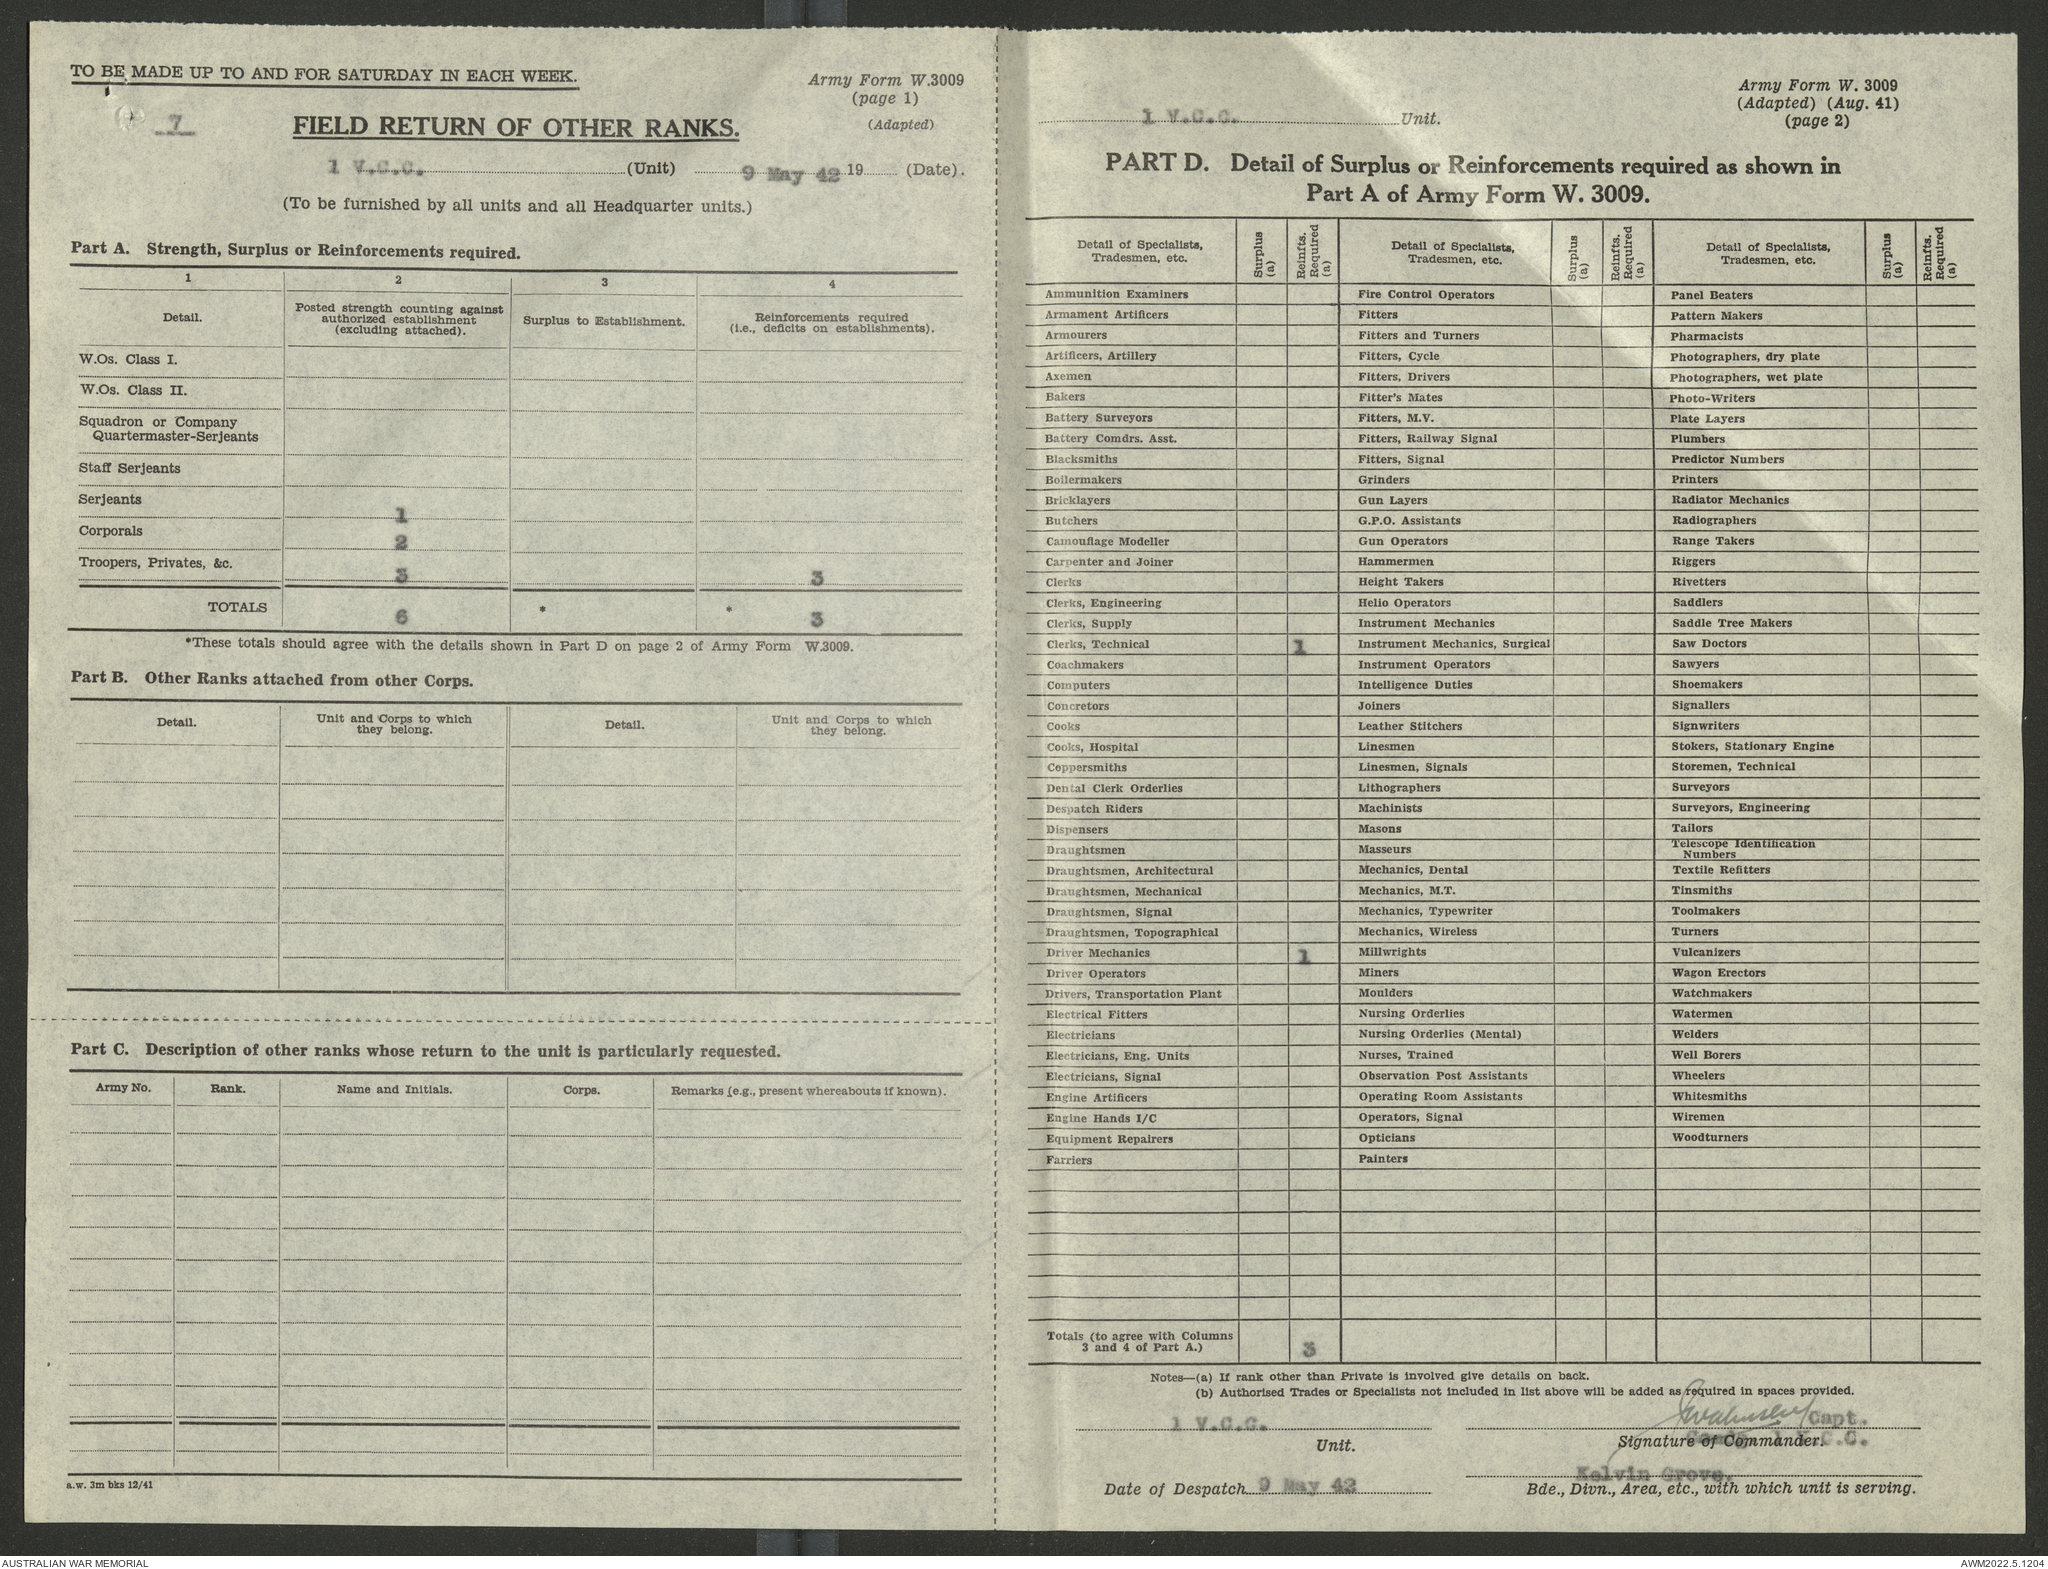 TO BE MADE UP TO AND FOR SATURDAY IN EACH WEEK.
Army Form W.3009
(page 1)
(Adapted)
7
FIELD RETURN OF OTHER RANKS.
1 V.C.C. (Unit) 9 May 42 19 (Date).
(To be furnished by all units and all Headquarter units.)
Part A. Strength, Surplus or Reinforcements required.
1 2 3 4
Detail. Posted strength counting against authorized establishment (excluding attached). Surplus to Establishment. Reinforcements required (i.e., deficits on establishments).
W.Os. Class I.
W.Os. Class II.
Squadron or Company
Quartermaster-Serjeants
Staff Serjeants
Serjeants 1
Corporals 2
Troopers, Privates, &c. 3 3
TOTALS 6 * * 3
*These totals should agree with the details shown in Part D on page 2 of Army Form W.3009.
Part B. Other Ranks attached from other Corps.
Detail. Unit and Corps to which they belong. Detail. Unit and Corps to which they belong.
Part C. Description of other ranks whose return to the unit is particularly requested.
Army No. Rank. Name and Initials. Corps. Remarks (e.g., present whereabouts if known).
a.w. 3m bks 12/41
Army Form W. 3009
(Adapted) (Aug. 41)
(page 2)
1 V.C.C. Unit.
PART D. Detail of Surplus or Reinforcements required as shown in
Part A of Army Form W. 3009.
Detail of Specialists, Tradesmen, etc. Surplus (a) Reinfts. Required (a) Detail of Specialists, Tradesmen, etc. Surplus (a) Reinfts. Required (a) Detail of Specialists, Tradesmen, etc. Surplus (a) Reinfts. Required (a)
Ammunition Examiners Fire Control Operators Panel Beaters
Armament Artificers Fitters Pattern Makers
Armourers Fitters and Turners Pharmacists
Artificers, Artillery Fitters, Cycle Photographers, dry plate
Axemen Fitters, Drivers Photographers, wet plate
Bakers Fitter's Mates Photo-Writers
Battery Surveyors Fitters, M.V. Plate Layers
Battery Comdrs. Asst. Fitters, Railway Signal Plumbers
Blacksmiths Fitters, Signal Predictor Numbers
Boilermakers Grinders Printers
Bricklayers Gun Layers Radiator Mechanics
Butchers G.P.O. Assistants Radiographers
Camouflage Modeller Gun Operators Range Takers
Carpenter and Joiner Hammermen Riggers
Clerks Height Takers Rivetters
Clerks, Engineering Helio Operators Saddlers
Clerks, Supply Instrument Mechanics Saddle Tree Makers
Clerks, Technical 1 Instrument Mechanics, Surgical Saw Doctors
Coachmakers Instrument Operators Sawyers
Computers Intelligence Duties Shoemakers
Concretors Joiners Signallers
Cooks Leather Stitchers Signwriters
Cooks, Hospital Linesmen Stokers, Stationary Engine
Coppersmiths Linesmen, Signals Storemen, Technical
Dental Clerk Orderlies Lithographers Surveyors
Despatch Riders Machinists Surveyors, Engineering
Dispensers Masons Tailors
Draughtsmen Masseurs Telescope Identification Numbers
Draughtsmen, Architectural Mechanics, Dental Textile Refitters
Draughtsmen, Mechanical Mechanics, M.T. Tinsmiths
Draughtsmen, Signal Mechanics, Typewriter Toolmakers
Draughtsmen, Topographical Mechanics, Wireless Turners
Driver Mechanics 1 Millwrights Vulcanizers
Driver Operators Miners Wagon Erectors
Drivers, Transportation Plant Moulders Watchmakers
Electrical Fitters Nursing Orderlies Watermen
Electricians Nursing Orderlies (Mental) Welders
Electricians, Eng. Units Nurses, Trained Well Borers
Electricians, Signal Observation Post Assistants Wheelers
Engine Artificers Operating Room Assistants Whitesmiths
Engine Hands I/C Operators, Signal Wiremen
Equipment Repairers Opticians Woodturners
Farriers Painters
Totals (to agree with Columns 3 and 4 of Part A.) 3
Notes—(a) If rank other than Private is involved give details on back.
(b) Authorised Trades or Specialists not included in list above will be added as required in spaces provided.
1 V.C.C. Capt.
Unit. Signature of Commander. 1 V.C.C.
Kelvin Grove.
Date of Despatch 9 May 42 Bde., Divn., Area, etc., with which unit is serving.
AUSTRALIAN WAR MEMORIAL AWM2022.5.1204